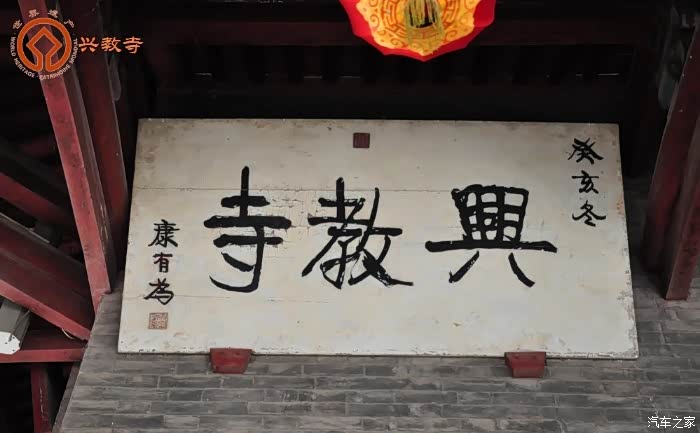 世界遗产
WORLD HERITAGE • PATRIMOINE MONDIAL
兴教寺
癸亥冬
興教寺
康有為
汽车之家